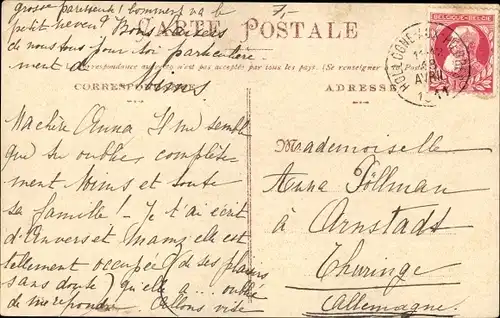 grosse paresseuse! Comment va le
petit neveu? Bons baisers
de nous tous pour toi particulière
ment de Moins
5.-
CARTE POSTALE
La correspondance au n'est pas acceptée par tous les pays. (Se renseigner
CORRESPONDANCE
ADRESSE
BELGIQUE-BELGIË
AVRIL
1911
Ma chère Anna Il me semble
que tu oublies complète
ment Moins et toute
sa famille! - Je t'ai écrit
d'Anvers et Mamz'elle est
tellement occupée (de ses plaisirs
sans doute) qu'elle a ... oublié
de me répondre. Allons vite
Mademoiselle
Anna Föllman
à Arnstadt
Thuringe
Allemagne